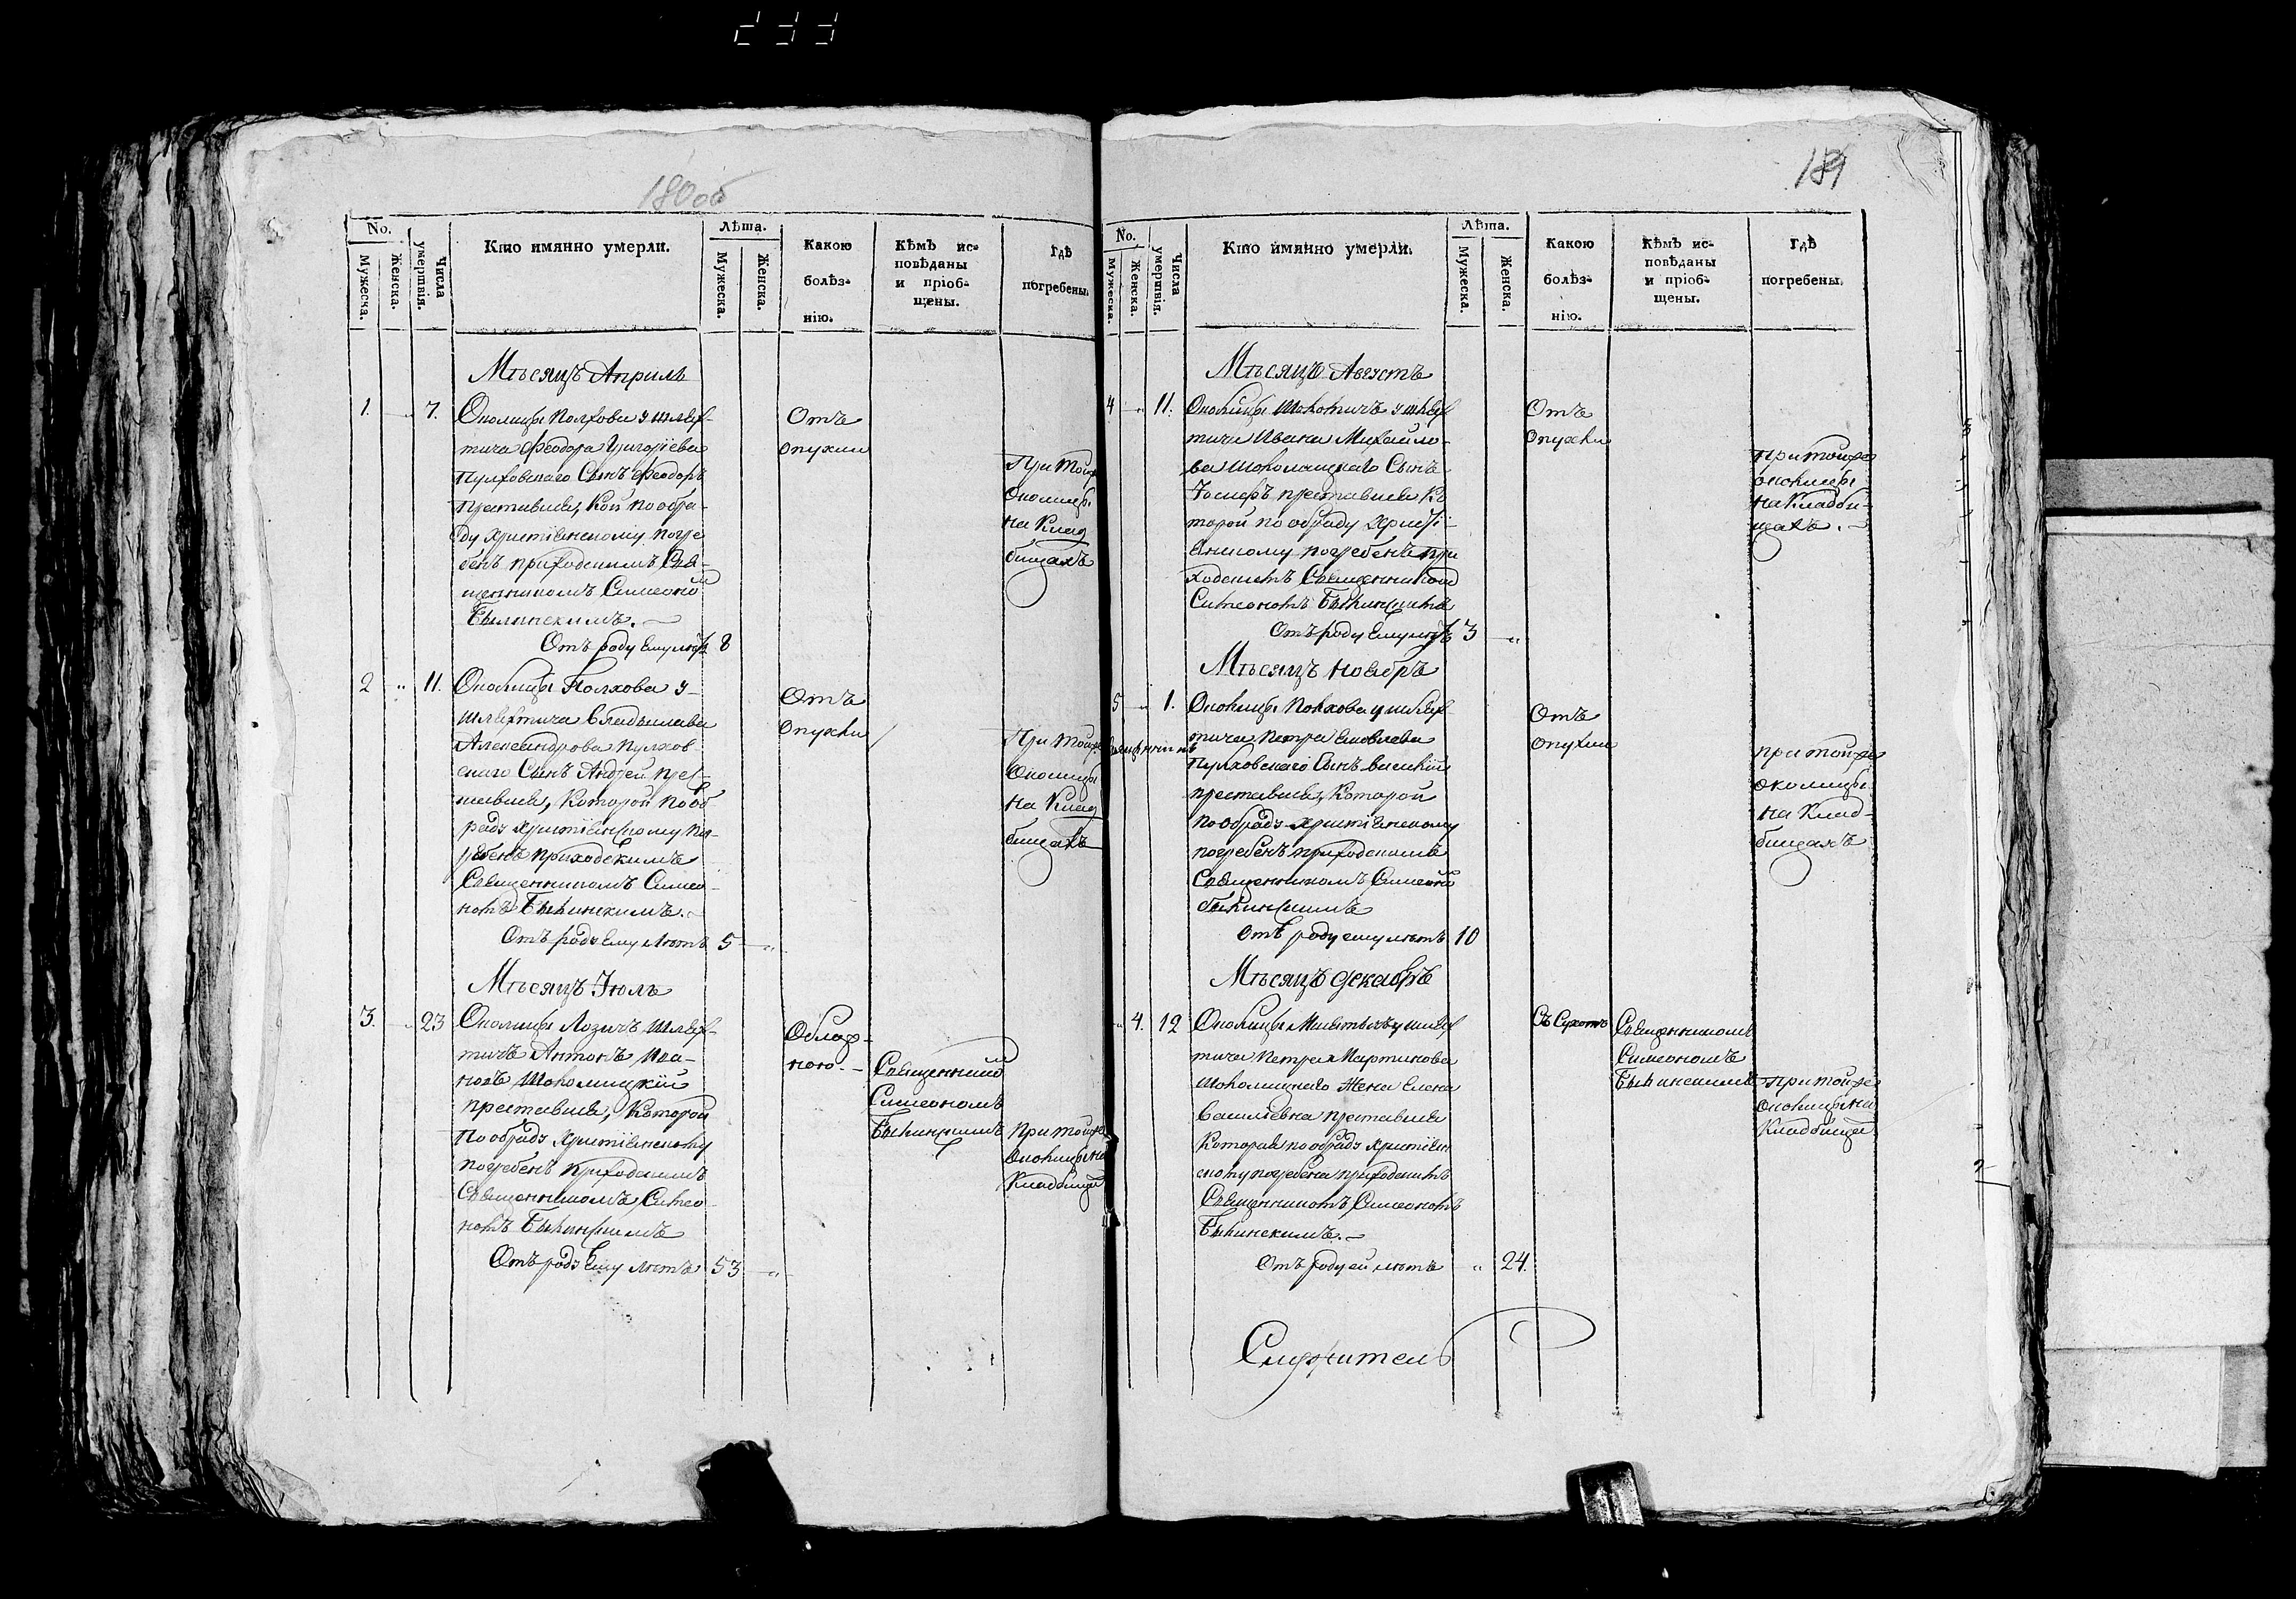 180 об
No.
Мужеска.
Женска.
Числа умертвія.
Кто имянно умерли.
Лѣта.
Мужеска.
Женска.
Какою
болѣз-
нію.
Кѣмъ ис-
повѣданы
и пріоб-
щены.
Гдѣ
погребены.
Мѣсяцъ Апрель
1. „ 7. Околицы Полхова у шлях-
тича Феодора Григоріева
Пулховскаго Сынъ Феодоръ
преставися, Кой по обря-
ду христіянскому погре
бенъ приходскимъ Свя-
щенникомъ Симеоно
Былинскимъ.
Отъ роду Ему лѣтъ 8
Отъ
опухли
При тойже
Околицы
на Клад
бищахъ
2 „ 11. Околицы Полхова у
шляхтича Владыслава
Александрова Пулхов
скаго Сынъ Андрей прес-
тавися, Которой по об
ряду христіянскому по-
гребенъ приходскимъ
Священникомъ Симео-
номъ Былинскимъ.
Отъ роду Ему лѣтъ 5 „
Отъ
опухли
При тойже
Околицы
на Клад
бищахъ
Мѣсяцъ Іюль
3. „ 23 Околицы Лозичъ шлях-
тичъ Антонъ Ива-
новъ Шоломицкій
преставися, Которой
По обряду христіянскому
погребенъ приходскимъ
Священникомъ Симео-
номъ Былинскимъ
Отъ роду Ему лѣтъ 53 „
Священнико
Симеономъ
Былинскимъ
при тойже
Околицы на
Кладбище
181
No.
Мужеска.
Женска.
Числа умертвія.
Кто имянно умерли.
Лѣта.
Мужеска.
Женска.
Какою
болѣз-
нію.
Кѣмъ ис-
повѣданы
и пріоб-
щены.
Гдѣ
погребены.
Мѣсяцъ Августъ
4 „ 11. Околицы у шлях
тича Ивана Михайло-
ва Шоломицкаго Сынъ
Іосифъ преставися Ко
торой по обряду христі-
янскому погребенъ при
ходскимъ Священникомъ
Симеономъ Былинскимъ
Отъ роду Ему лѣтъ 3 „
Отъ
опухли
при тойже
околицы
на Кладби-
щахъ.
Мѣсяцъ Ноябръ
5 „ 1. Околицы Полхова у шлях
тича Петра
Пулховскаго Сынъ Василій
преставися, Которой
по обряду христіянскому
погребенъ приходскимъ
Священникомъ Симеоно
Былинскимъ
Отъ роду ему лѣтъ 10
Отъ
опухли
при тойже
околицы
на Клад-
бищахъ
Мѣсяцъ Декабръ
„ 4. 12 Околицы у шлях
тича Петра Мартинова
Шоломицкаго Жена Елена
Василіевна преставися
Которая по обряду христіян
скому погребена приходскимъ
Священникомъ Симеономъ
Былинскимъ.
Отъ роду ей лѣтъ „ 24.
Съ Сухотъ
Священникомъ
Симеономъ
Былинскимъ
при тойже
околицы на
Кладбище